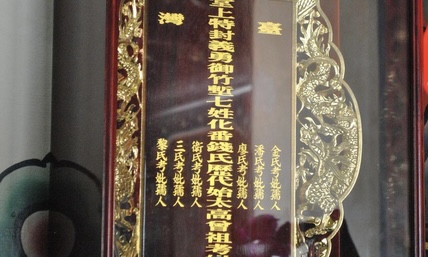 臺灣
金氏考妣孺人
氏考妣孺人
廖氏考妣孺人
堂上特封義勇御竹塹七姓化番錢氏歷代始太高曾祖考
衛氏考妣孺人
三氏考妣孺人
黎氏考妣孺人